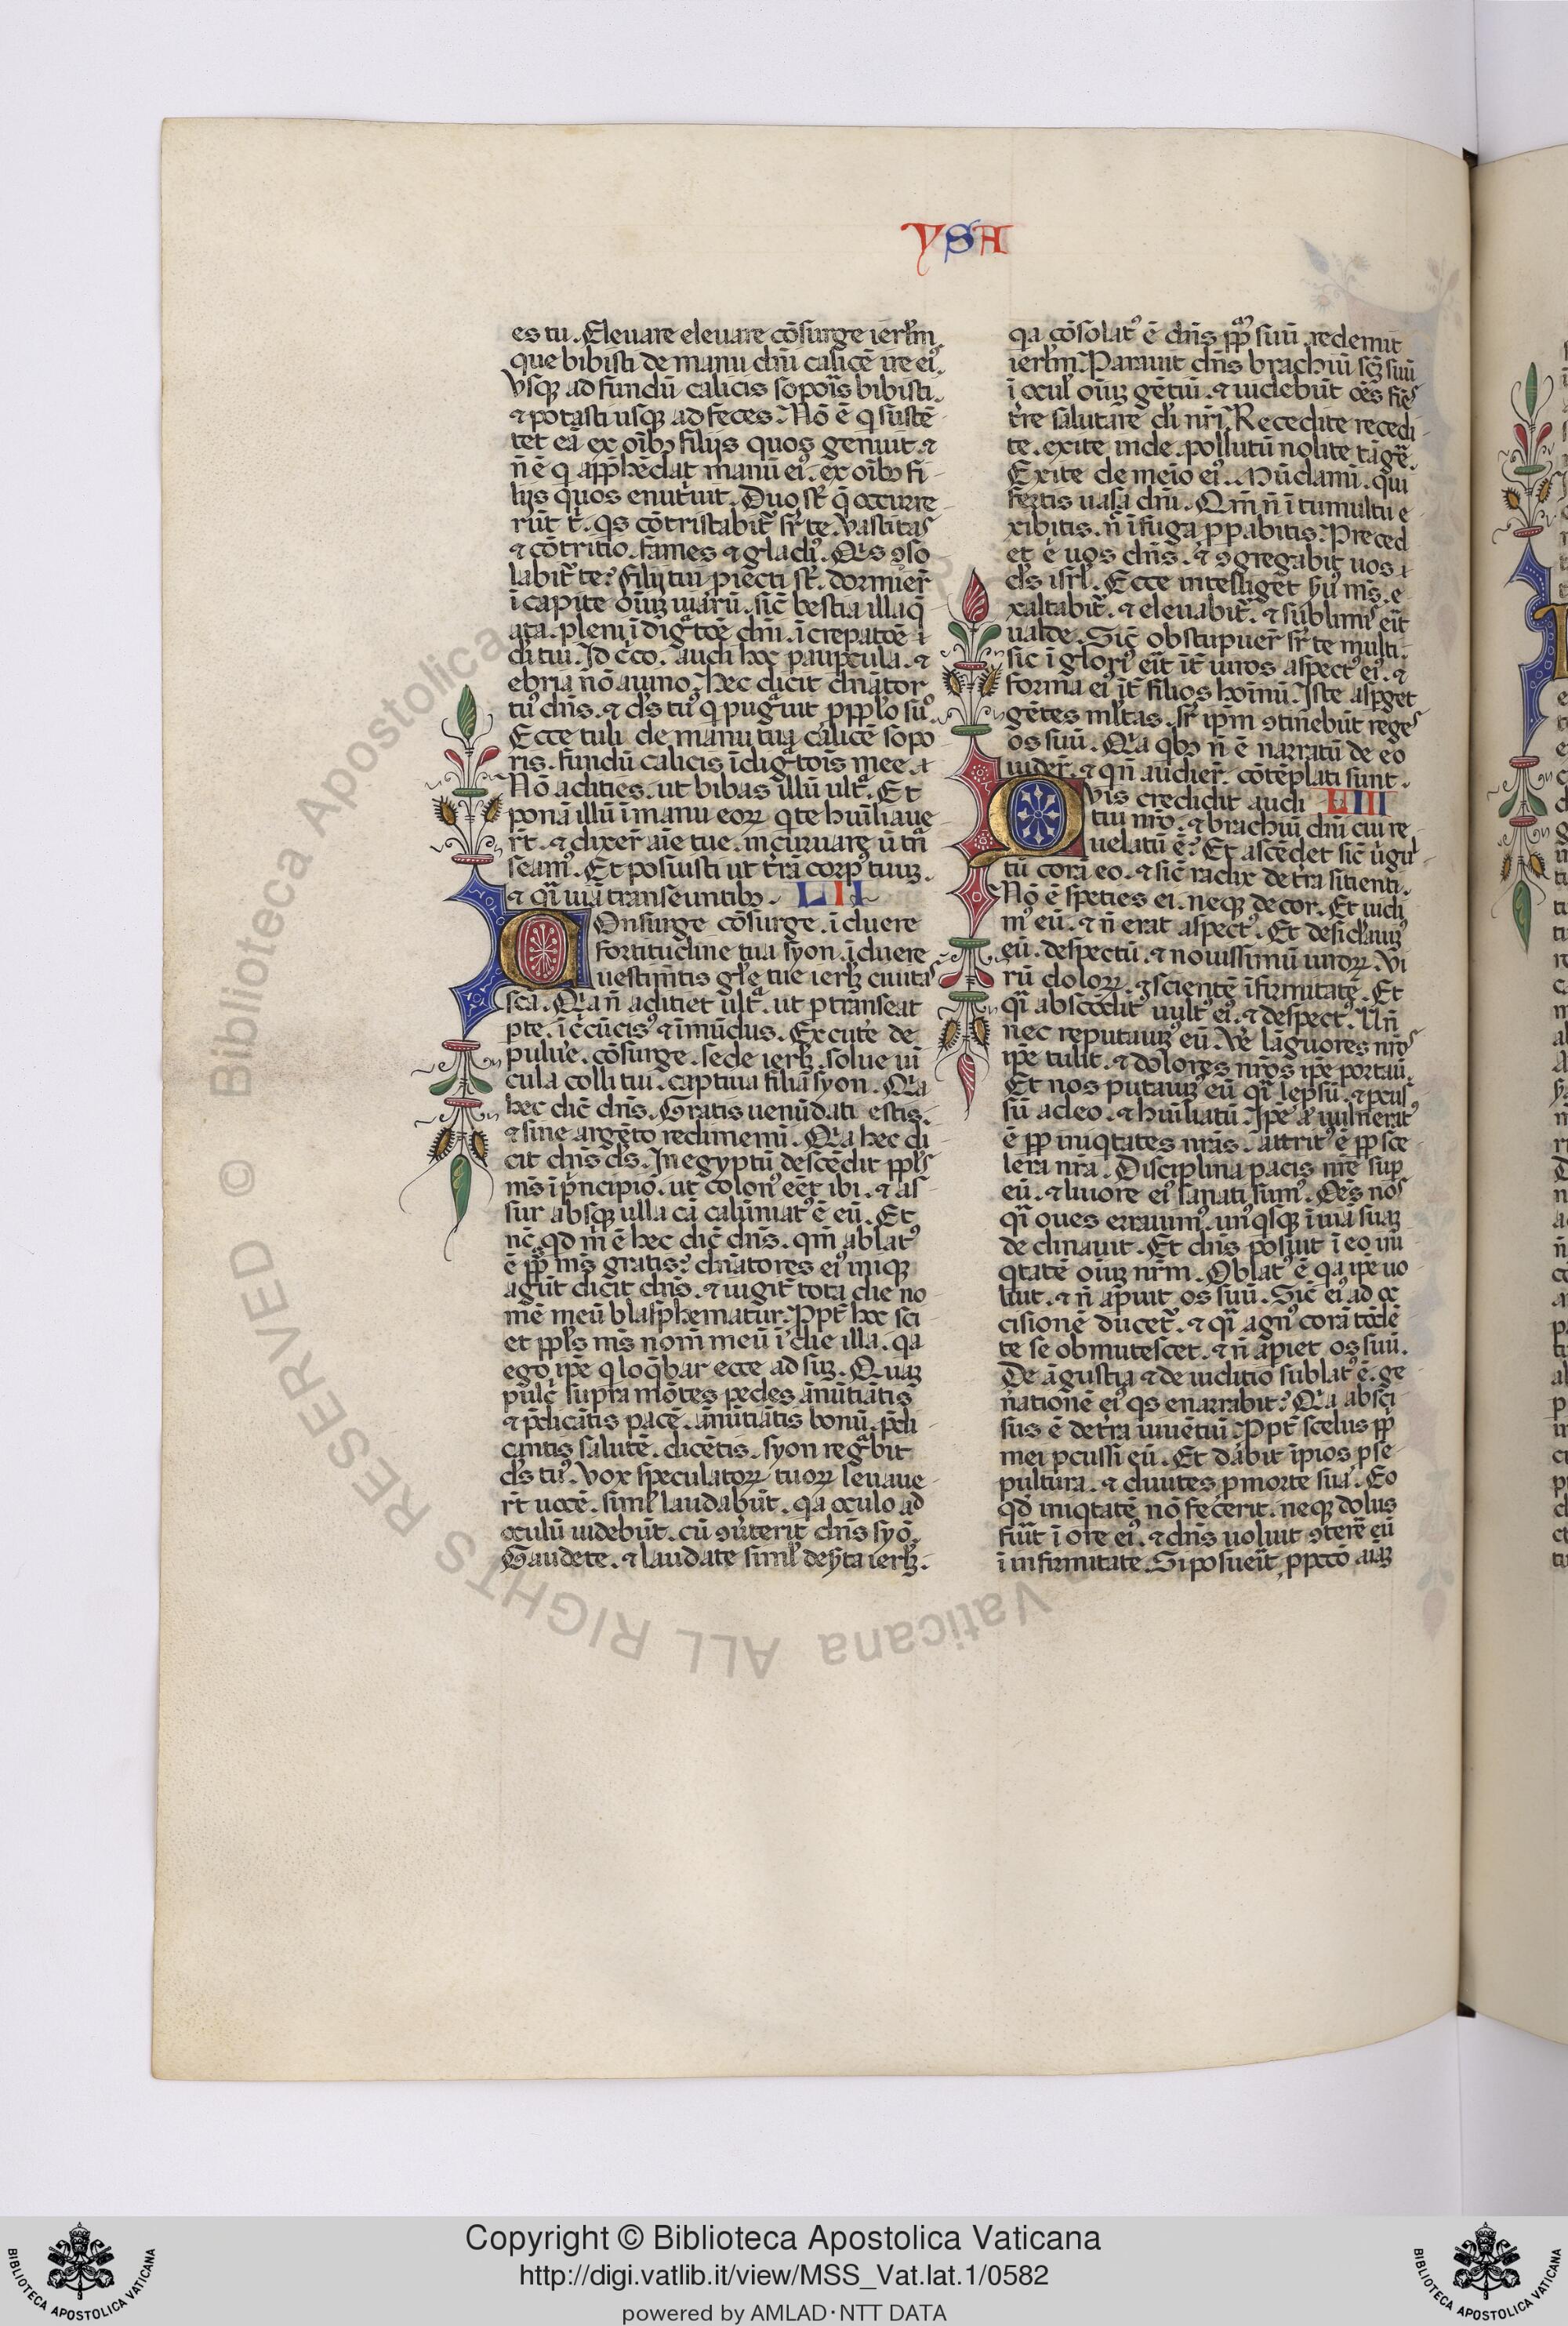 YSA
es tu. Eleuare eleuare cōsurge ierl̄m
que bibisti de manu dñi calicē ire eiꝰ.
Vsqꝫ ad fundū calicis sopoīs bibisti.
⁊ potasti usqꝫ ad feces. Nō ē q sustē
tet eā ex oībꝫ filiis quos genuit. ⁊
n̄ ē q app̄hēdat manū eiꝰ. ex oībꝫ fi
liis quos enutͥuit. Duo st̄ q̄ occurre
rūt t̄. qͥs cōtristabit̄ sr̄ te. vastitas
⁊ cōtritio. fames ⁊ gladiꝰ. Qͥs ꝯso
labit̄ te? Filij tui piecti st̄. dormier̄
ī capite oīuꝫ uiarū. sic̄ bestia illaq̄
ata. pleni īdigͣtōe dñi. īcrepatōe
di tui. Id c̄co. audi hec paupcula. ⁊
ebria nō a uino. Hec dicit dn̄ator
tuꝰ dñs. ⁊ ds̄ tuꝰ q pugͣuit p pplo̅ suꝰ.
Ecce tuli de manu tua calicē sopo
ris. fundū calicis īdigͣtois mee.
Nō adities. ut bibas illū ultͣ. Et
ponā illū ī manu eoꝝ q te huīliaue
rt̄. ⁊ dixer̄ aīe tue. incuruare ū trā
seamꝰ. Et posuisti ut t̄rā corpꝰ tuuꝫ.
⁊ qͣi uiā transeuntibꝫ. LII
Onsurge cōsurge. īduere
fortitudine tua syon. īduere
uestim̄tis gl̄e tue ierl̄ꝫ ciuitas
sc̄a. Qͥa n̄ aditiet ultͣ. ut ptranseat
pte. īc̄cūcisꝰ ⁊ īmūdus. Excute de
puluͥe. cōsurge. sede ierl̄ꝫ. solue uī
cula colli tui. captiua filiā syon. Qͥa
hec dic̄ dñs. Gratis uenūdati estis.
⁊ sine argēto redimemī. Qͥa hec di
cit dñs ds̄. In egyptū descēdit ppl̄s
ms̄ ī pͥncipio. ut colonꝰ eēt ibi. ⁊ as
sur absqꝫ ulla cā calūniatꝰ ē eū. Et
nc̄ qd m̄ ē hec dic̄ dñs. qm̄ ablatꝰ
ē pp̄ꝰ ms̄ gratis? dn̄atores eiꝰ iniqꝫ
agūt dicit dñs. ⁊ iugit̄ tota die no
mē meū blasphematur. Ppt̄ hec sci
et ppl̄s ms̄ nom̄ meū ī die illa. qͥa
ego ip̄e q loq̄bar ecce adsuꝫ. Quaꝫ
pulc̄ͥ supra mōtes pedes ānūtiātis
⁊ p̄dicātis pacē. ānūtiātis bonū. p̄di
cantis salutē. dicētis. syon regͣbit
ds̄ tuꝰ. Vox speculatoꝝ tuoꝝ leuaue
rt̄ uocē. siml̄ laudabūt. qͥa oculo ad
oculū uidebūt. cū ꝯuͥterit dñs syō.
Gaudete. ⁊ laudate siml̄ dep̄ta ierl̄ꝫ.
qͥa cōsolatꝰ ē dñs pp̄ꝰ suū. redemit
ierl̄m. Parauit dñs brachiū scm̄ suū
ī ocul̄ oīuꝫ gētiū. ⁊ uidebūt oēs fies
tr̄e salutare di nr̄i. Recedite recedi
te. exite inde. pollutū nolite tāgͤe.
Exite de meio eiꝰ. mūdamī. qui
fertis uasa dñi. Qm̄ n̄ ī tumultu e
xibitis. n̄ ī fuga ppabitis. Preced
et ē uos dñs. ⁊ ꝯgregabit uos
ds̄ isrl̄. Ecce intelliget suꝰ ms̄. e
xaltabit̄. ⁊ eleuabit̄. ⁊ sublimꝭ eīt
ualde. Sic̄ obstupuer̄ sr̄ te multi.
sic ī gloriꝰ eīt īt̄ uiros aspectꝰ eiꝰ. ⁊
forma eiꝰ īt̄ filios hoīnū. Iste asꝑget
gētes ml̄tas. sr̄ ip̄m ꝯtinebūt reges
os suū. Qͥa qͥbꝫ n̄ ē narratū de eo
uider̄. ⁊ qͥ n̄ audier̄. cōtēplati sunt.
Vis credidit audi LIII
tiu nr̄o. ⁊ brachiū dñi cui re
uelatū ē? Et ascēdet sic̄ uͥgul
tū corā eo. ⁊ sic̄ radix de tr̄a sitienti.
Nō ē speties ei. neqꝫ decor. Et uidi
mꝰ eū. ⁊ n̄ erat aspectꝰ. Et desidͣauiꝰ
eū. despectū. ⁊ nouissimū uiroꝝ. Vi
rū doloꝝ. ⁊ scientē īfirmitatē. Et
qͣi abscōditꝰ uultꝰ eiꝰ. ⁊ despectꝰ. Un̄
nec reputauimꝰ eū. Vē lāguores nr̄os
ip̄e tulit. ⁊ dolores nr̄os ip̄e portaū.
Et nos putauimꝰ eū qͣi lepsū. ⁊ ꝑcus
sū a deo. ⁊ huīliatū. Ip̄e aͣ uulneratꝰ
ē pp̄ iniqͥtates nr̄as. attritꝰ ē pp̄ sce
lera nr̄a. Disciplina pacis nr̄e sup
eū. ⁊ liuore eiꝰ sanati sumꝰ. Oēs nos
qͣi oues errauimꝰ. unꝰqͥsqꝫ ī uiā suaꝫ
declinauit. Et dñs posuit ī eo ini
qͥtatē oīuꝫ nr̄m. Oblatꝰ ē qͥa ip̄e uo
luit. ⁊ n̄ apͥuit os suū. Sic̄ eiꝰ ad oc
cisionē ducet̄. ⁊ qͣi agnꝰ corā tōdē
te se obmutescet. ⁊ n̄ apiet os suū.
De āgustia ⁊ de iuditio sublatꝰ ē. ge
nͣationē eiꝰ qͥs enarrabit? Qͥa absci
sus ē de tr̄a uiuētiū. Ppt̄ scelus pp̄ꝉ
mei pcussi eū. Et dabit īpios p se
pultura. ⁊ diuites p morte sua. Eo
qd iniqͥtatē nō fecerit. neqꝫ dolus
fūit ī ore eiꝰ. ⁊ dñs uoluit ꝯterē eū
ī infirmitate. Si posueīt p pccō aīaꝫ
Copyright © Biblioteca Apostolica Vaticana
http://digi.vatlib.it/view/MSS_Vat.lat.1/0582
powered by AMLAD·NTT DATA
BIBLIOTECA APOSTOLICA VATICANA
BIBLIOTECA APOSTOLICA VATICANA
© Biblioteca Apostolica Vaticana ALL RIGHTS RESERVED